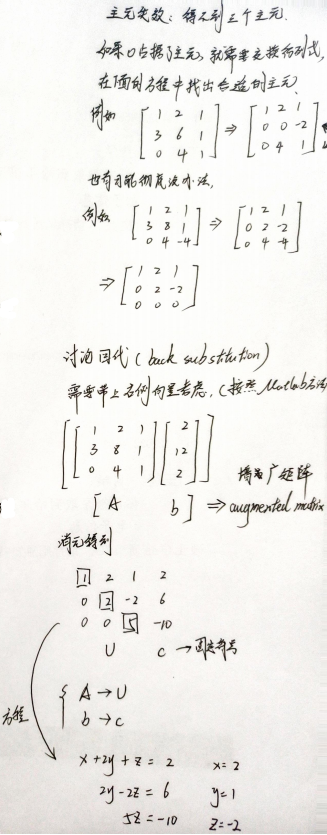 主元失效：得不到三个主元.
如果0占据了主元，就需要交换行列式，
在下面的方程中找出合适的主元.
例如 [1 2 1 ⇒ [1 2 1
3 6 1 0 0 -2
0 4 1] 0 4 1]
也有可能彻底没办法，
例如 [1 2 1 ⇒ [1 2 1
3 8 1 0 2 -2
0 4 -4] 0 4 -4]
⇒ [1 2 1
0 2 -2
0 0 0]
讨论回代 (back substitution)
需要带上右侧向量考虑，(按照Matlab方法
[[1 2 1] [2]]
[[3 8 1] [12]]
[[0 4 1] [2]]
增广矩阵
[A b] ⇒ augmented matrix
消元得到
1 2 1 2
0 2 -2 6
0 0 5 -10
U c →固定符号
方程 { A → U
b → c
x + 2y + z = 2 x = 2
2y - 2z = 6 y = 1
5z = -10 z = -2